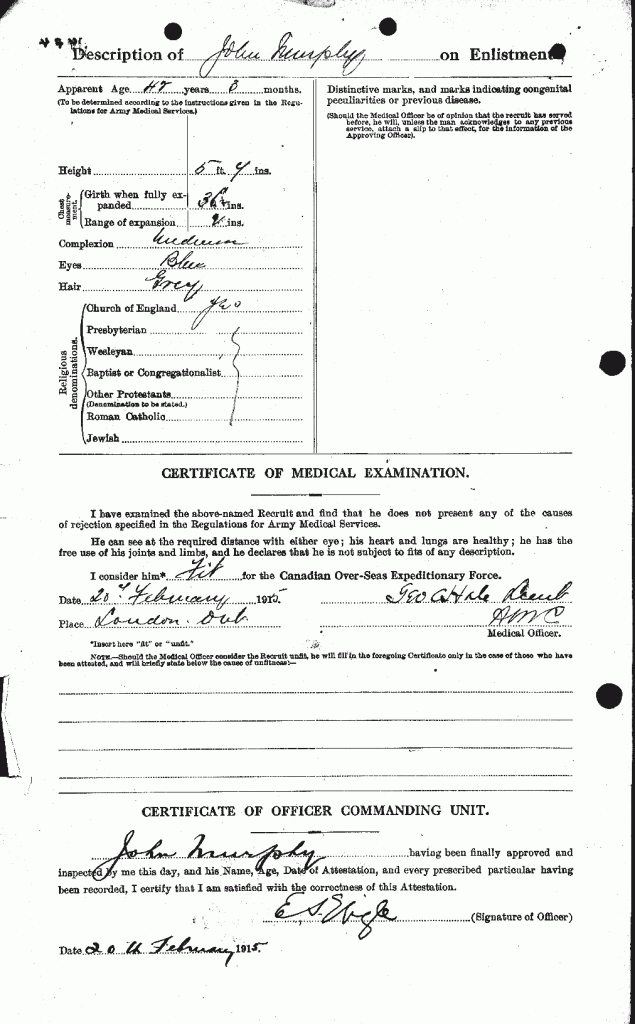 Description of John Murphy on Enlistment
Apparent Age years 3 months.
(To be determined according to the instructions given in the Regu-
lations for Army Medical Services.)
Height 5 ft. 4 ins.
Chest
measure-
ment.
Girth when fully ex-
panded 36 ins.
Range of expansion 2 ins.
Complexion Medium
Eyes Blue
Hair Grey
Religious
denominations.
Church of England Yes
Presbyterian
Wesleyan
Baptist or Congregationalist
Other Protestants
(Denomination to be stated.)
Roman Catholic
Jewish
Distinctive marks, and marks indicating congenital
peculiarities or previous disease.
(Should the Medical Officer be of opinion that the recruit has served
before, he will, unless the man acknowledges to any previous
service, attach a slip to that effect, for the information of the
Approving Officer).
CERTIFICATE OF MEDICAL EXAMINATION.
I have examined the above-named Recruit and find that he does not present any of the causes
of rejection specified in the Regulations for Army Medical Services.
He can see at the required distance with either eye; his heart and lungs are healthy; he has the
free use of his joints and limbs, and he declares that he is not subject to fits of any description.
I consider him* Fit for the Canadian Over-Seas Expeditionary Force.
Date 20th February 1915 Geo C Hale Lieut
Place London. Ont. AMC
Medical Officer.
*Insert here "fit" or "unfit."
NOTE.—Should the Medical Officer consider the Recruit unfit, he will fill in the foregoing Certificate only in the case of those who have
been attested, and will briefly state below the cause of unfitness:—
CERTIFICATE OF OFFICER COMMANDING UNIT.
John Murphy having been finally approved and
inspected by me this day, and his Name, Age, Date of Attestation, and every prescribed particular having
been recorded, I certify that I am satisfied with the correctness of this Attestation.
(Signature of Officer)
Date 20th February 1915.